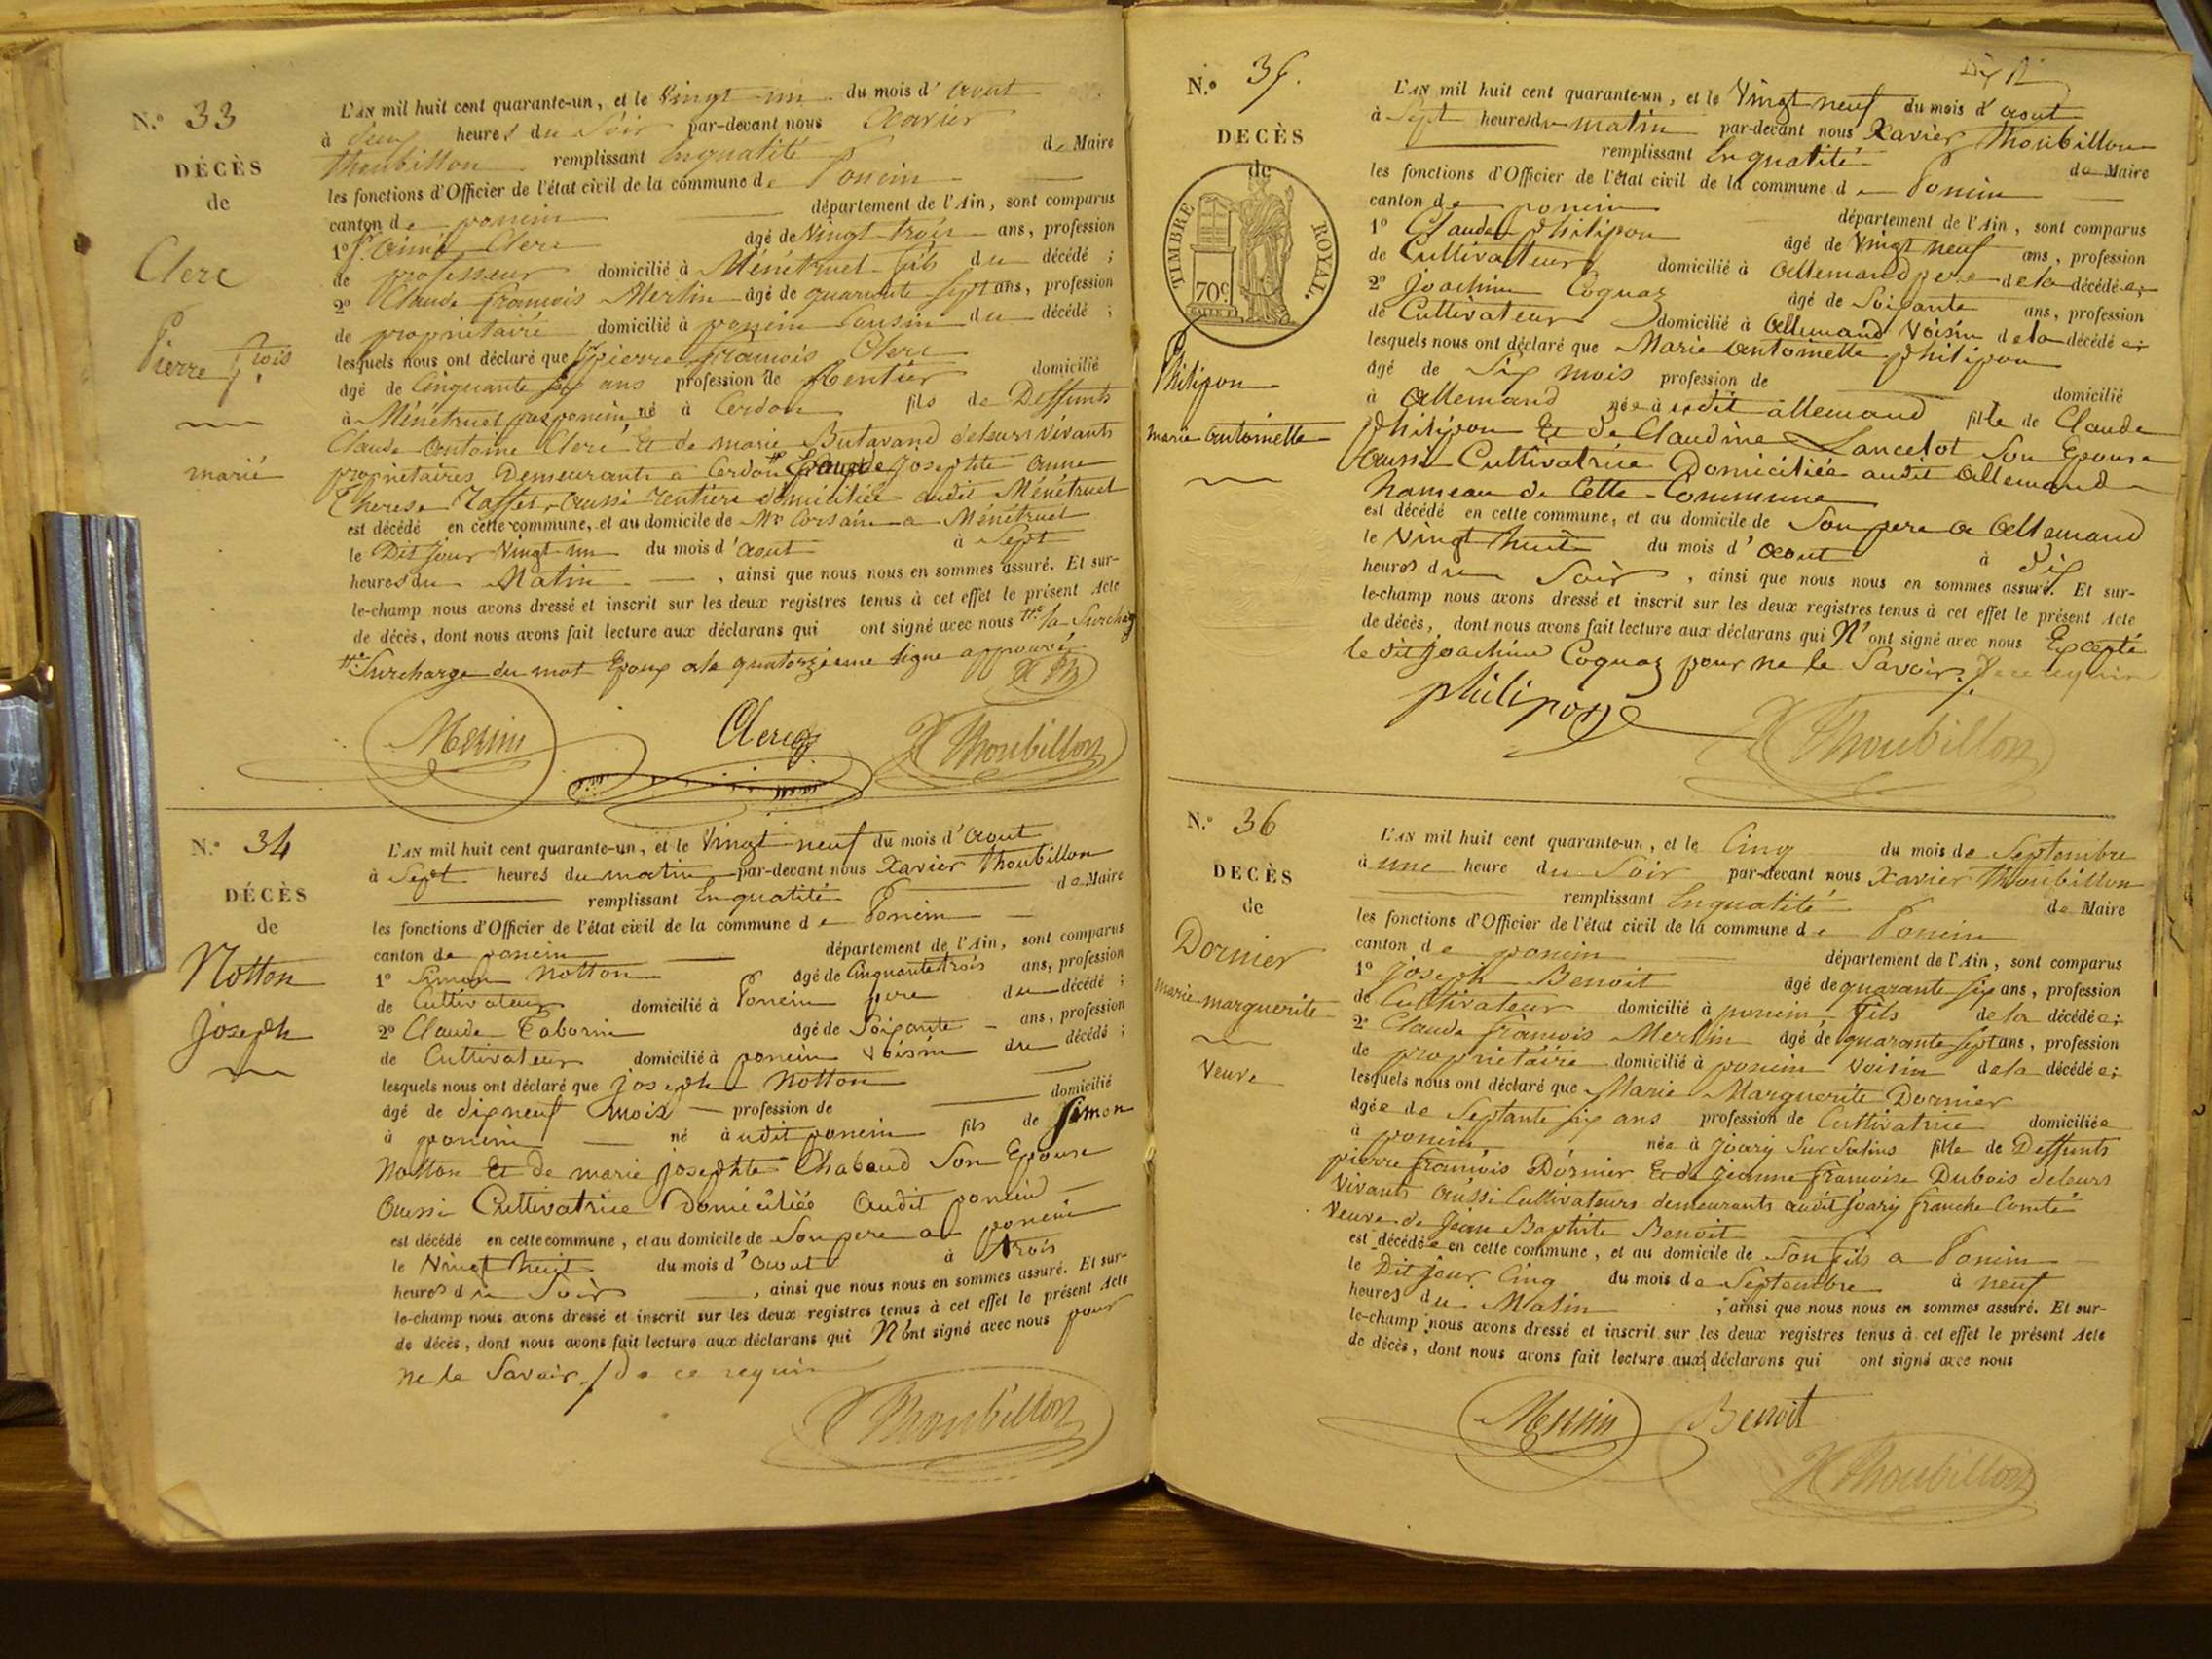 N.° 33
DÉCÈS
de
Clerc
Pierre f.rois
marié
L'AN mil huit cent quarante-un, et le Vingt-un du mois d'aout
à deux heures du Soir par-devant nous Xavier
Thoubillon remplissant En qualité de Maire
les fonctions d'Officier de l'état civil de la commune de Poncin
canton de poncin département de l'Ain, sont comparus
1° Aimé Clerc âgé de Vingt trois ans, profession
de professeur domicilié à Ménétruel fils du décédé ;
2° Claude françois Merlin âgé de quarante Sept ans, profession
de propriétaire domicilié à poncin Cousin du décédé ;
lesquels nous ont déclaré que pierre françois Clerc
âgé de Cinquante six ans profession de Rentier domicilié
à Ménétruel pas poncin, né à Cerdon fils de Deffunts
Claude Antoine Clerc Et de marie Butavand de leurs vivants
propriétaires Demeurants a Cerdon Epoux de Josephte anne
Therese aussi rentière domiciliée audit Ménétruel
est décédé en cette commune, et au domicile de Mr Corsain a Ménétruel
le Dit jour Vingt un du mois d'aout à Sept
heures du Matin, ainsi que nous nous en sommes assuré. Et sur-
le-champ nous avons dressé et inscrit sur les deux registres tenus à cet effet le présent Acte
de décès, dont nous avons fait lecture aux déclarans qui ont signé avec nous la Surcharg
Surcharge du mot Epoux a la quatorzieme ligne approuvée
X Th
Merlin Clerc X Thoubillon
N.° 34
DÉCÈS
de
Notton
Joseph
L'AN mil huit cent quarante-un, et le Vingt neuf du mois d'aout
à Sept heures du matin par-devant nous Xavier Thoubillon
remplissant En qualité de Maire
les fonctions d'Officier de l'état civil de la commune de Poncin
canton de poncin département de l'Ain, sont comparus
1° Simon Notton âgé de Cinquante trois ans, profession
de Cultivateur domicilié à Poncin pere du décédé ;
2° Claude Taborin âgé de Soixante ans, profession
de Cultivateur domicilié à poncin voisin du décédé ;
lesquels nous ont déclaré que joseph Notton
âgé de dix neuf mois profession de domicilié
à poncin né audit poncin fils de Simon
Notton Et de marie josephte Chabaud Son Epouse
aussi Cultivatrice Domiciliée audit poncin
est décédé en cette commune, et au domicile de Son pere a poncin
le Vingt huit du mois d'aout à trois
heures du Soir, ainsi que nous nous en sommes assuré. Et sur-
le-champ nous avons dressé et inscrit sur les deux registres tenus à cet effet le présent Acte
de décès, dont nous avons fait lecture aux déclarans qui N'ont signé avec nous pour
ne le Savoir. / de ce requis
X Thoubillon
N.° 35.
DECÈS
de
TIMBRE ROYAL.
70c
Philipon
marie antoinette
L'AN mil huit cent quarante-un, et le Vingt neuf du mois d'aout
à Sept heures du matin par-devant nous Xavier Thoubillon
remplissant En qualité de Maire
les fonctions d'Officier de l'état civil de la commune de Poncin
canton de poncin département de l'Ain, sont comparus
1° Claude Philipon âgé de Vingt neuf ans, profession
de Cultivateur domicilié à Allemand pere de la décédée;
2° Joachim Coquaz âgé de Soixante ans, profession
de Cultivateur domicilié à Allemand Voisin de la décédée;
lesquels nous ont déclaré que Marie antoinette philipon
âgé de Six mois profession de domicilié
à Allemand née à udit allemand fille de Claude
philipon Et de Claudine Lancelot Son Epouse
aussi Cultivatrice Domiciliée audit Allemand
hameau de Cette Commune
est décédé en cette commune, et au domicile de Son pere a Allemand
le Vingt huit du mois d'aout à dix
heures du Soir, ainsi que nous nous en sommes assuré. Et sur-
le-champ nous avons dressé et inscrit sur les deux registres tenus à cet effet le présent Acte
de décès, dont nous avons fait lecture aux déclarans qui N'ont signé avec nous Excepté
le dit joachim Coquaz pour ne le Savoir. / de ce requis
philipon X Thoubillon
N.° 36
DECÈS
de
Dornier
marie marguerite
Veuve
L'AN mil huit cent quarante-un, et le Cinq du mois de Septembre
à une heure du Soir par-devant nous Xavier Thoubillon
remplissant En qualité de Maire
les fonctions d'Officier de l'état civil de la commune de Poncin
canton de poncin département de l'Ain, sont comparus
1° joseph Benoit âgé de quarante six ans, profession
de Cultivateur domicilié à poncin, fils de la décédée;
2° Claude françois Merlin âgé de quarante sept ans, profession
de propriétaire domicilié à poncin Voisin de la décédée;
lesquels nous ont déclaré que Marie Marguerite Dornier
âgée de Septante six ans profession de Cultivatrice domiciliée
à poncin née à Ivary Sur Salins fille de Deffunts
pierre françois Dornier Et de Jeanne françoise Dubois de leurs
Vivants aussi Cultivateurs demeurants audit Ivary franche Comté
Veuve de Jean Baptiste Benoit
est décédée en cette commune, et au domicile de Son fils a Poncin
le Dit jour Cinq du mois de Septembre à neuf
heures du Matin, ainsi que nous nous en sommes assuré. Et sur-
le-champ nous avons dressé et inscrit sur les deux registres tenus à cet effet le présent Acte
de décès, dont nous avons fait lecture aux déclarans qui ont signé avec nous
Merlin Benoit
X Thoubillon